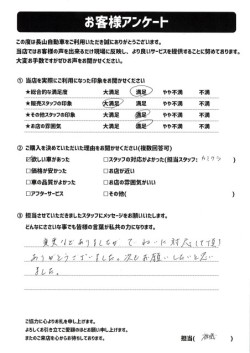 お客様アンケート
この度は長山自動車をご利用いただき誠にありがとうございます。
当店ではお客様の声を出来るだけ現場に反映し、より良いサービスを提供することに努めております。
大変お手数ですがぜひお声をお聞かせください。
① 当店を実際にご利用になった印象をお聞かせください
★総合的な満足度 大満足 満足 やや不満 不満
★販売スタッフの印象 大満足 満足 やや不満 不満
★その他スタッフの印象 大満足 満足 やや不満 不満
★お店の雰囲気 大満足 満足 やや不満 不満
② ご購入を決めていただいた理由をお聞かせください(複数回答可)
☑欲しい車があった □スタッフの対応がよかった(担当スタッフ: )
□価格が安かった □お店が近い
□車の品質がよかった □お店の雰囲気がいい
□アフターサービス □その他( )
③ 担当させていただきましたスタッフにメッセージをお願いいたします。
どんなにささいな事でも皆様の言葉が私共の力になります。
ありましたが
対応して頂
ありがとうございました。次もお願いしたいと思い
ました。
ご協力に心よりお礼を申し上げます。
よろしくお引き立てご愛顧のほどお願い申し上げます。
またのご来店を心からお待ちしております。
担当( )